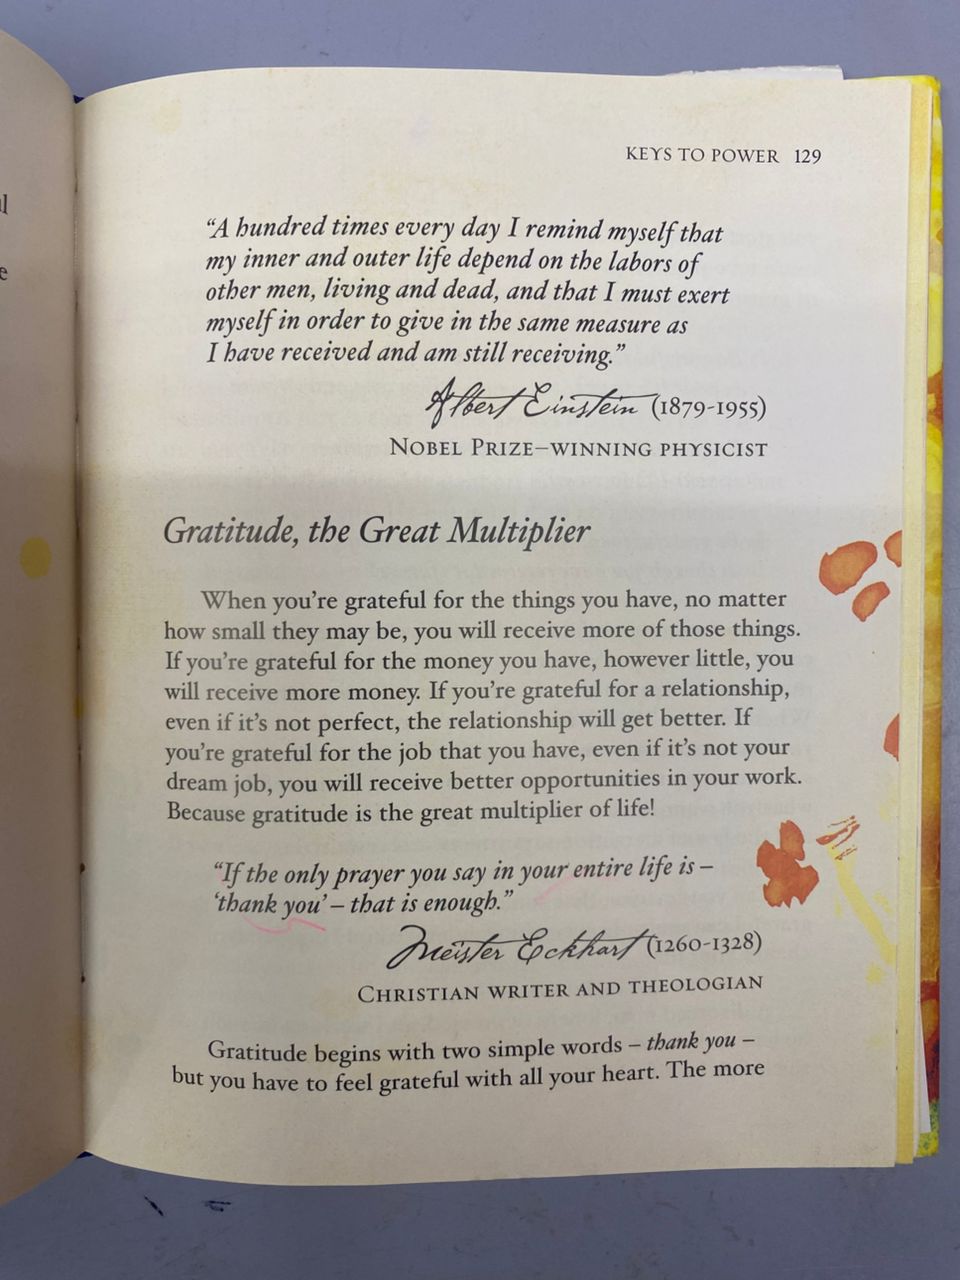 KEYS TO POWER 129
“A hundred times every day I remind myself that
my inner and outer life depend on the labors of
other men, living and dead, and that I must exert
myself in order to give in the same measure as
I have received and am still receiving.”
Albert Einstein (1879-1955)
NOBEL PRIZE–WINNING PHYSICIST
Gratitude, the Great Multiplier
When you’re grateful for the things you have, no matter
how small they may be, you will receive more of those things.
If you’re grateful for the money you have, however little, you
will receive more money. If you’re grateful for a relationship,
even if it’s not perfect, the relationship will get better. If
you’re grateful for the job that you have, even if it’s not your
dream job, you will receive better opportunities in your work.
Because gratitude is the great multiplier of life!
“If the only prayer you say in your entire life is –
‘thank you’ – that is enough.”
Meister Eckhart (1260-1328)
CHRISTIAN WRITER AND THEOLOGIAN
Gratitude begins with two simple words – thank you –
but you have to feel grateful with all your heart. The more